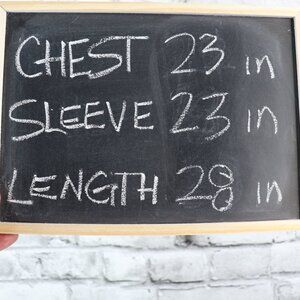 CHEST 23 in
SLEEVE 23 in
LENGTH 28 in